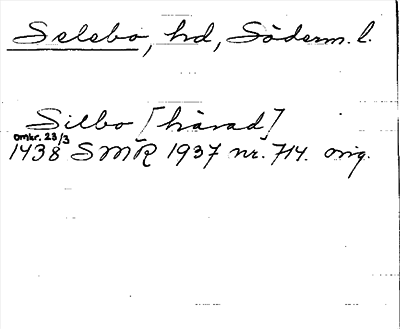 Selebo, hd, Söderm. l.
Silbo [härad]
omkr. 23/3
1438 SMR 1937 nr. 714. orig.